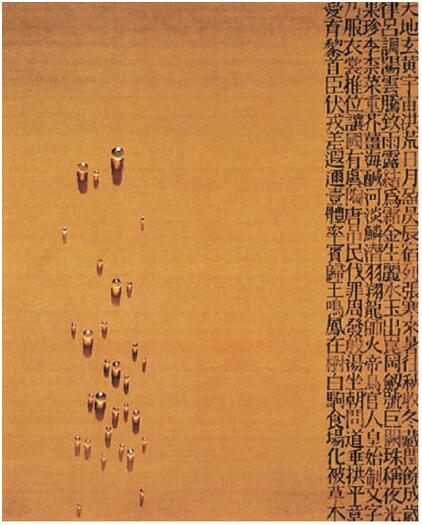 天地玄黃宇宙洪荒日月盈昃辰宿列張寒來暑往秋收冬藏閏餘成歲
律呂調陽雲騰致雨露結爲霜金生麗水玉出崑岡劍號巨闕珠稱夜光
果珍李柰菜重芥薑海鹹河淡鱗潛羽翔龍師火帝鳥官人皇始制文字
乃服衣裳推位讓國有虞陶唐弔民伐罪周發殷湯坐朝問道垂拱平章
愛育黎首臣伏戎羌遐邇壹體率賓歸王鳴鳳在樹白駒食場化被草木